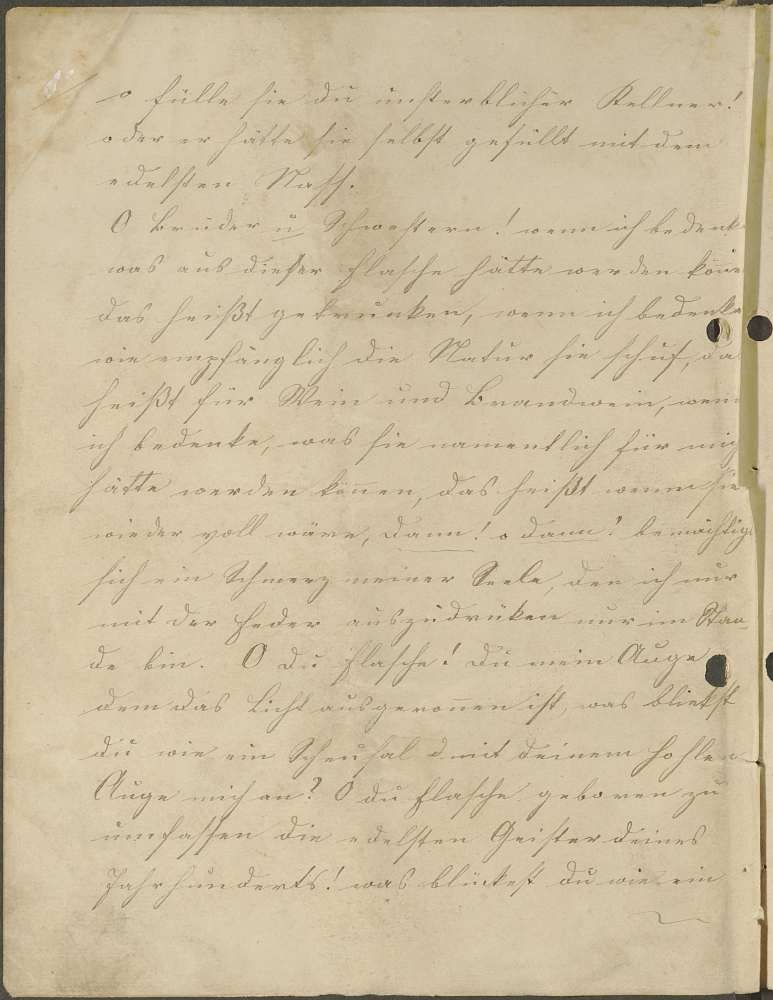 o fülle sie du unsterblicher Kellner!
oder er hätte sie selbst gefüllt mit dem
edelsten Nass.
O Brüder u Schwestern! wenn ich bedenke
was aus dieser Flasche hätte werden könne
das heißt getrunken, wenn ich bedenke
wie empfänglich die Natur sie schuf, da
heißt für Wein und Brandwein, wenn
ich bedenke, was sie namentlich für mich
hätte werden können, das heißt wenn sie
wieder voll wäre, dann! o dann! bemächtigt
sich ein Schmerz meiner Seele, den ich nur
mit der Feder auszudrüken nur im Stan-
de bin. O du Flasche! du mein Auge
dem das Licht ausgeronnen ist, was bliekst
du wie ein Scheusal d mit deinem hohlen
Auge mich an? O du Flasche geboren zu
umfassen die edelsten Geister deines
Jahrhunderts! was blückest du wie ein